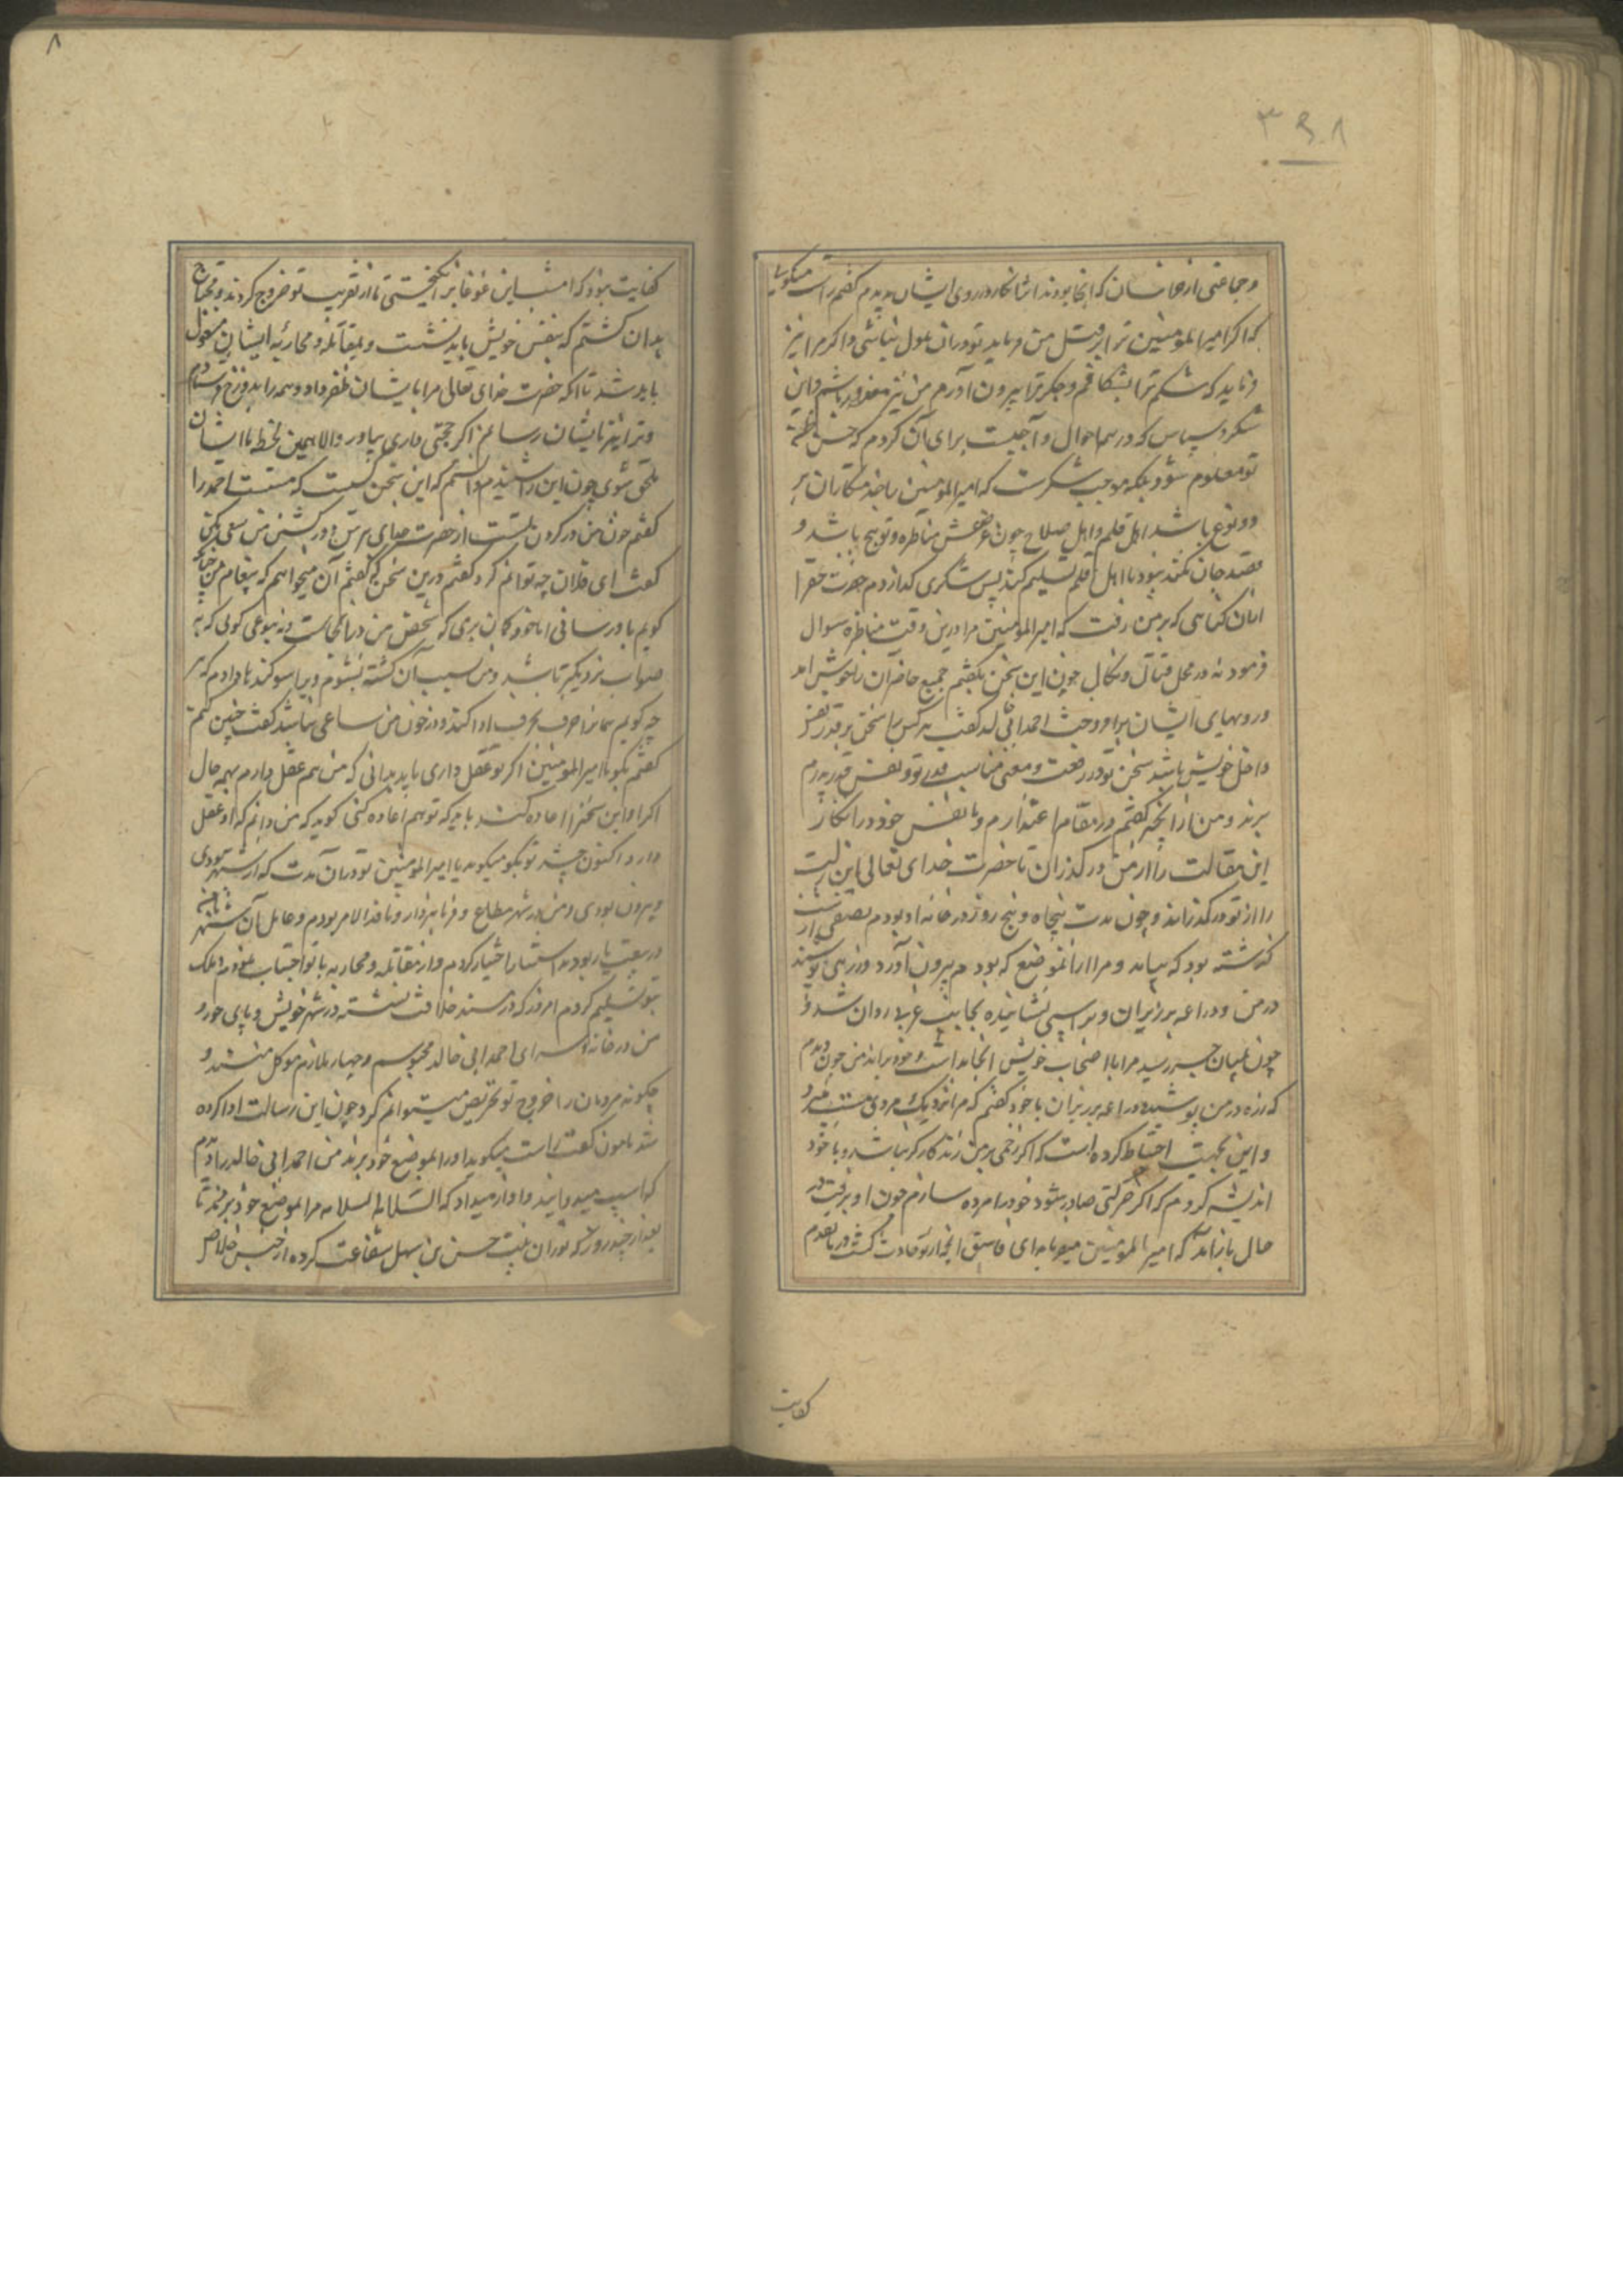 ۸
۳۹۸
وجماعتی از خاسان که آنجا بودند انکار در روی ایشان بدیدم گفتم راست میگویی
که اکر امیرالمومنین ترا بر قتل من فرماید تو دران ملول نباشی واکر مرا نیز
فرماید که شکم ترا بشکافم وجکر ترا بیرون آورم من نیز معذور باشم واین
شکر وسپاس که در همه احوال واجبست برای آن کردم که حسن
تو معلوم شود بلکه موجب شکرست که امیرالمومنین را خدمتکاران بر
دو نوع باشد اهل قلم واهل صلاح چون غرضش مناظره وتوبیخ باشد و
قصد جان نکند بود با اهل قلم تسلیم کند پس شکری کزاردم حضرت حق را
که بر من رفت که امیرالمومنین مرا درین وقت مناظره سوال
فرمود نه در محل قتال ونکال چون این سخن بگفتم جمیع حاضران را خوش آمد
ورویهای ایشان برافروخت احمد ابی خالد گفت هرکس را سخن بر قدر نفس
داخل خویش باشد سخن تو در رفعت ومعنی مناسب قدر تو ونفس قدر پدرم
برند ومن از آنچه گفتم در مقام اعتذارم وبا نفس خود در انکار
این مقالت را از من در کذران تا حضرت خدای تعالی این زلت
را از تو در کذراند وچون مدت پنجاه وپنج روز در خانه او بودم نصفی از شب
کذشته بود که بیامد ومرا از آن موضع که بودم بیرون آورد وزرهی پوشید
در من ودراعه بر زیر آن وبر اسپی نشانیده بجانب غربی روان شد و
چون بمیان جسر رسید مرا با اصحاب خویش آنجا بداشت وخود براند من چون دیدم
که زره در من پوشید ودراعه بر زیر آن با خود گفتم که مرا نزدیک مردی مست میبرد
واین بجهت احتیاط کرده است که اکر زخمی بر من زند کارکر نباشد وبا خود
اندیشه کردم که اکر حرکتی صادر شود خود را مرده سازم چون او برفت در
حال باز آمد که امیرالمومنین میفرماید ای فاسق آنچه از تو حادث کشت در ما تقدم
کفایت
کفایت نبود که امشب این غوغا برانکیختی تا از تقریب تو خروج کردند ومحتاج
بدان کشتم که بنفس خویش باید نشست وبمقاتله ومحاربه ایشان مشغول
باید شد تا آنکه حضرت خدای تعالی مرا بایشان ظفر داد وهمه را بدوزخ فرستادم
وترا نیز بایشان رسانم اکر حجتی داری بیاور والا همین لحظه با ایشان
ملحق شوی چون این را شنیدم دانستم که این سخن کسیست که مستست احمد را
گفتم خون من در کردن تست از حضرت خدای بترس ودر کشتن من سعی مکن
گفت ای فلان چه توانم کرد گفتم درین سخن گفتم آن میخواهم که پیغام من چنانکه
کویم باو رسانی اما نخوه کمان بری که شخص من در آنجاست ونه بنوعی کوئی که به
صواب نزدیکتر باشد ومن بسبب آن کشته نشوم ویرا سوکند دادم که هر
چه کویم همانرا حرف بحرف ادا کند ودر خون من ساعی نباشد گفت چنین کنم
گفتم بکو یا امیرالمومنین اکر تو عقل داری باید بدانی که من هم عقل دارم بهمه حال
اکر او این سخنرا اعاده کند باید که تو هم اعاده کنی کوید که من دانم که او عقل
دارد اکنون چیست تو بکو میکوید یا امیرالمومنین تو دران مدت که از شهر
بیرون بودی ومن در شهر مطاع وفرمانبردار ونافذ الامر بودم وعامل آن شهر با من
در بیعت یار بودند استتار اختیار کردم واز مقاتله ومحاربه با تو اجتناب نمودم وملک
بتو تسلیم کردم امروز که در مسند خلافت نشسته در شهر خویش وپای خود و
من در خانه وسرای احمد ابی خالد محبوسم وچهار ملازم موکل منند و
چکونه مردمان را خروج تو تحریص میتوانم کرد چون این رسالت ادا کرده
شد مامون گفت راست میکوید او را بموضع خود برند من احمد ابی خالد را دیدم
که اسپ میدوانید وآواز میداد که السلامه السلامه مرا بموضع خود بردند تا
بعد از چند روز که توران بنت حسن بن سهل شفاعت کرده از حبس خلاص